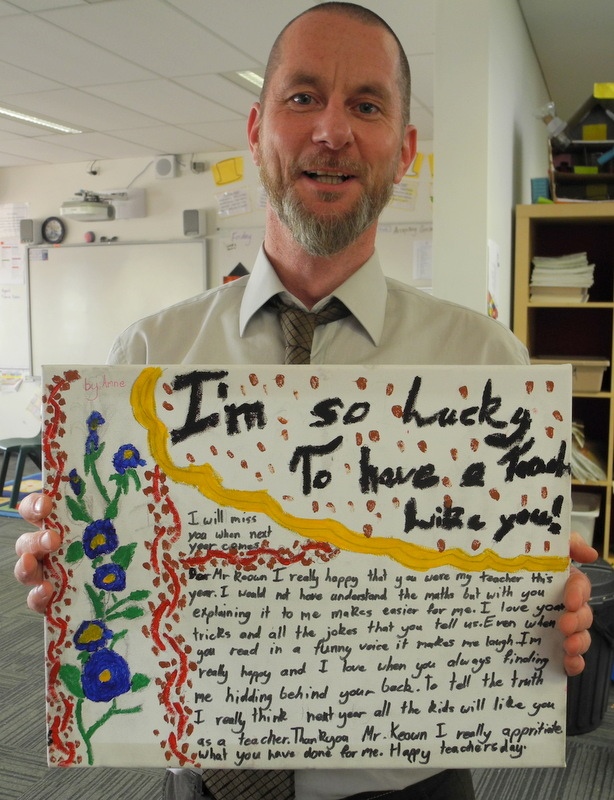 by Anne
I'm so Lucky
To have a Teach
Like you!
I will miss
you when next
year comes
Dear Mr Keown I really happy that you were my teacher this
year. I would not have understand the maths but with you
explaining it to me makes easier for me. I love your
tricks and all the jokes that you tell us. Even when
you read in a funny voice it makes me laugh. I'm
really happy and I love when you always finding
me hidding behind your back. To tell the truth
I really think next year all the kids will like you
as a teacher. Thankyou Mr. Keown I really appritiate
what you have done for me. Happy teachersday.
Friday